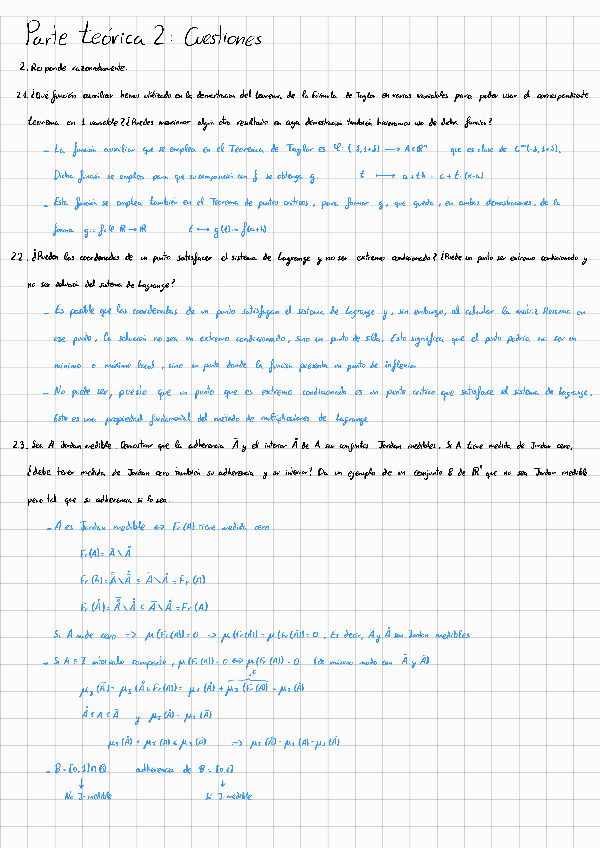 Parte teórica 2: Cuestiones
2. Responde razonadamente.
2.1. ¿Qué función auxiliar hemos utilizado en la demostración del teorema de la Fórmula de Taylor en varias variables para poder usar el correspondiente
teorema en 1 variable? ¿Puedes mencionar algún otro resultado en cuya demostración también hiciéramos uso de dicha función?
- La función auxiliar que se emplea en el Teorema de Taylor es φ: (-δ, 1+δ) → A ⊂ ℝⁿ que es clase de C^m(-δ, 1+δ).
Dicha función se emplea para que su composición con f se obtenga g. t ⟼ a+th = a+t·(x-a)
- Esta función se emplea también en el Teorema de puntos críticos, para formar g, que queda, en ambas demostraciones, de la
forma g: f∘φ ℝ → ℝ t ⟼ g(t) = f(a+th)
2.2. ¿Pueden las coordenadas de un punto satisfacer el sistema de Lagrange y no ser extremo condicionado? ¿Puede un punto ser extremo condicionado y
no ser solución del sistema de Lagrange?
- Es posible que las coordenadas de un punto satisfagan el sistema de Lagrange y, sin embargo, al calcular la matriz Hessiana en
ese punto, la solución no sea un extremo condicionado, sino un punto de silla. Esto significa que el punto podría no ser un
mínimo o máximo local, sino un punto donde la función presenta un punto de inflexión
- No puede ser, puesto que un punto que es extremo condicionado es un punto crítico que satisface el sistema de Lagrange.
Esto es una propiedad fundamental del método de multiplicadores de Lagrange
2.3. Sea A Jordan medible. Demostrar que la adherencia Ā y el interior Å de A son conjuntos Jordan medibles. Si A tiene medida de Jordan cero,
¿debe tener medida de Jordan cero también su adherencia y su interior? Da un ejemplo de un conjunto B de ℝ que no sea Jordan medible
pero tal que su adherencia sí lo sea.
- A es Jordan medible ⟺ Fr(A) tiene medida cero
Fr(A) = Ā \ Å
Fr(Ā) =
Fr(Å) =
Si A mide cero → μ(Fr(A)) = 0 → μ(Fr(Å)) = μ(Fr(Ā)) = 0. Es decir, Å y Ā son Jordan medibles
- Si A ⊂ I intervalo compacto, μ(Fr(A)) = 0 ⟺ μ(Fr(A)) = 0 (de mismo modo con Ā y Å)
Å ⊂ A ⊂ Ā y μ_J(Å) = μ_J(Ā)
- B = [0,1] ∩ ℚ adherencia de B = [0,1]
↓ ↓
No J-medible Si J-medible